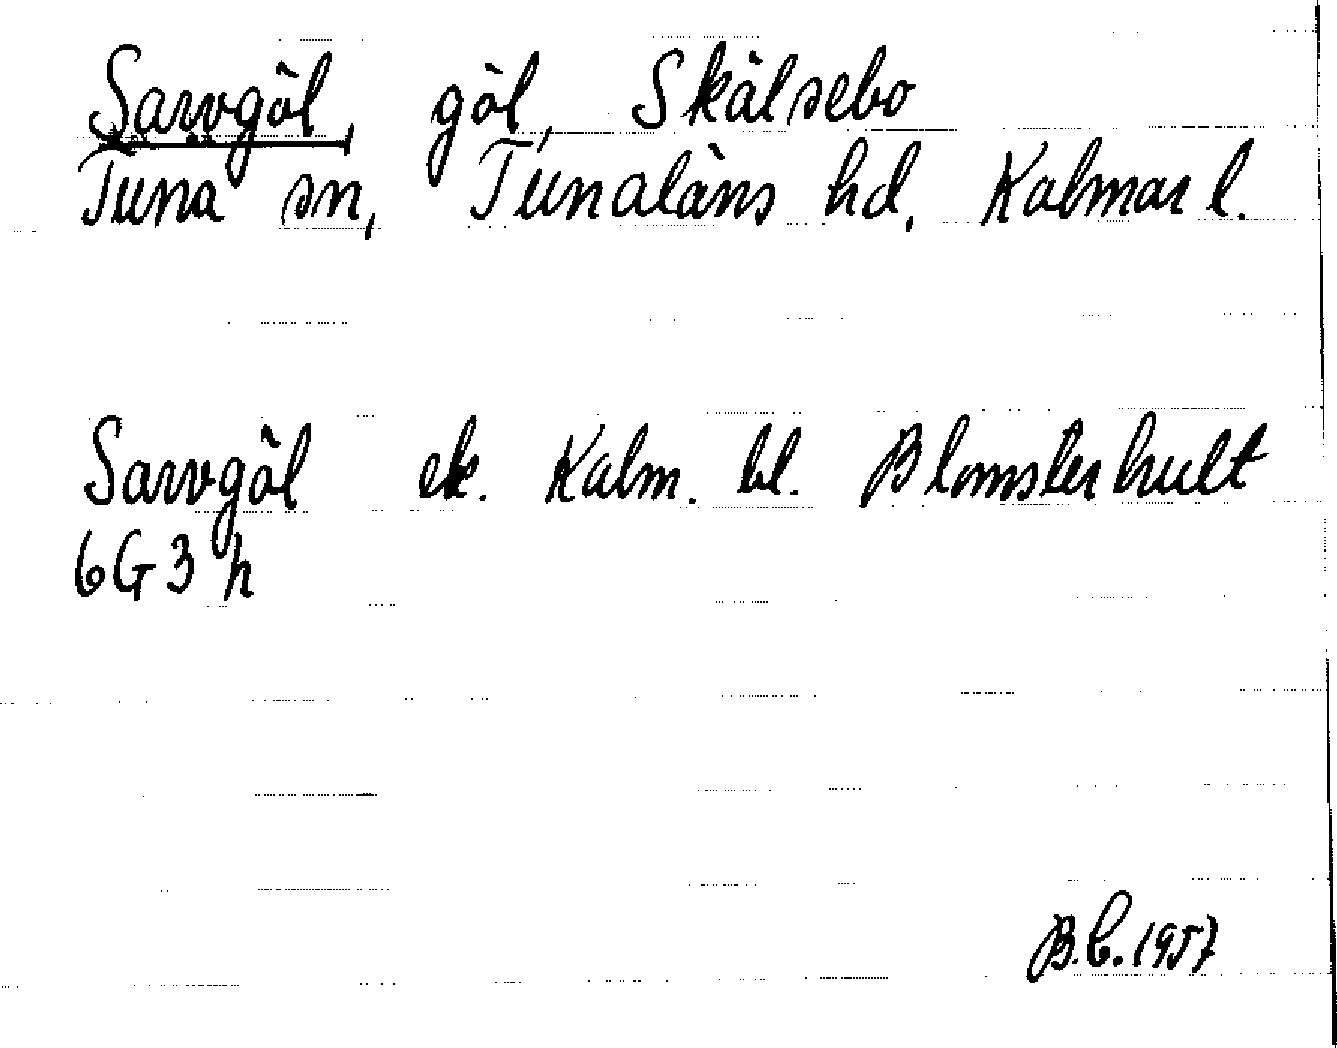 Sarvgöl, göl, Skälsebo
Tuna sn, Tunaläns hd, Kalmar l.
Sarvgöl ek. Kalm. bl. Blomsterhult
6G3h
B.L. 1957